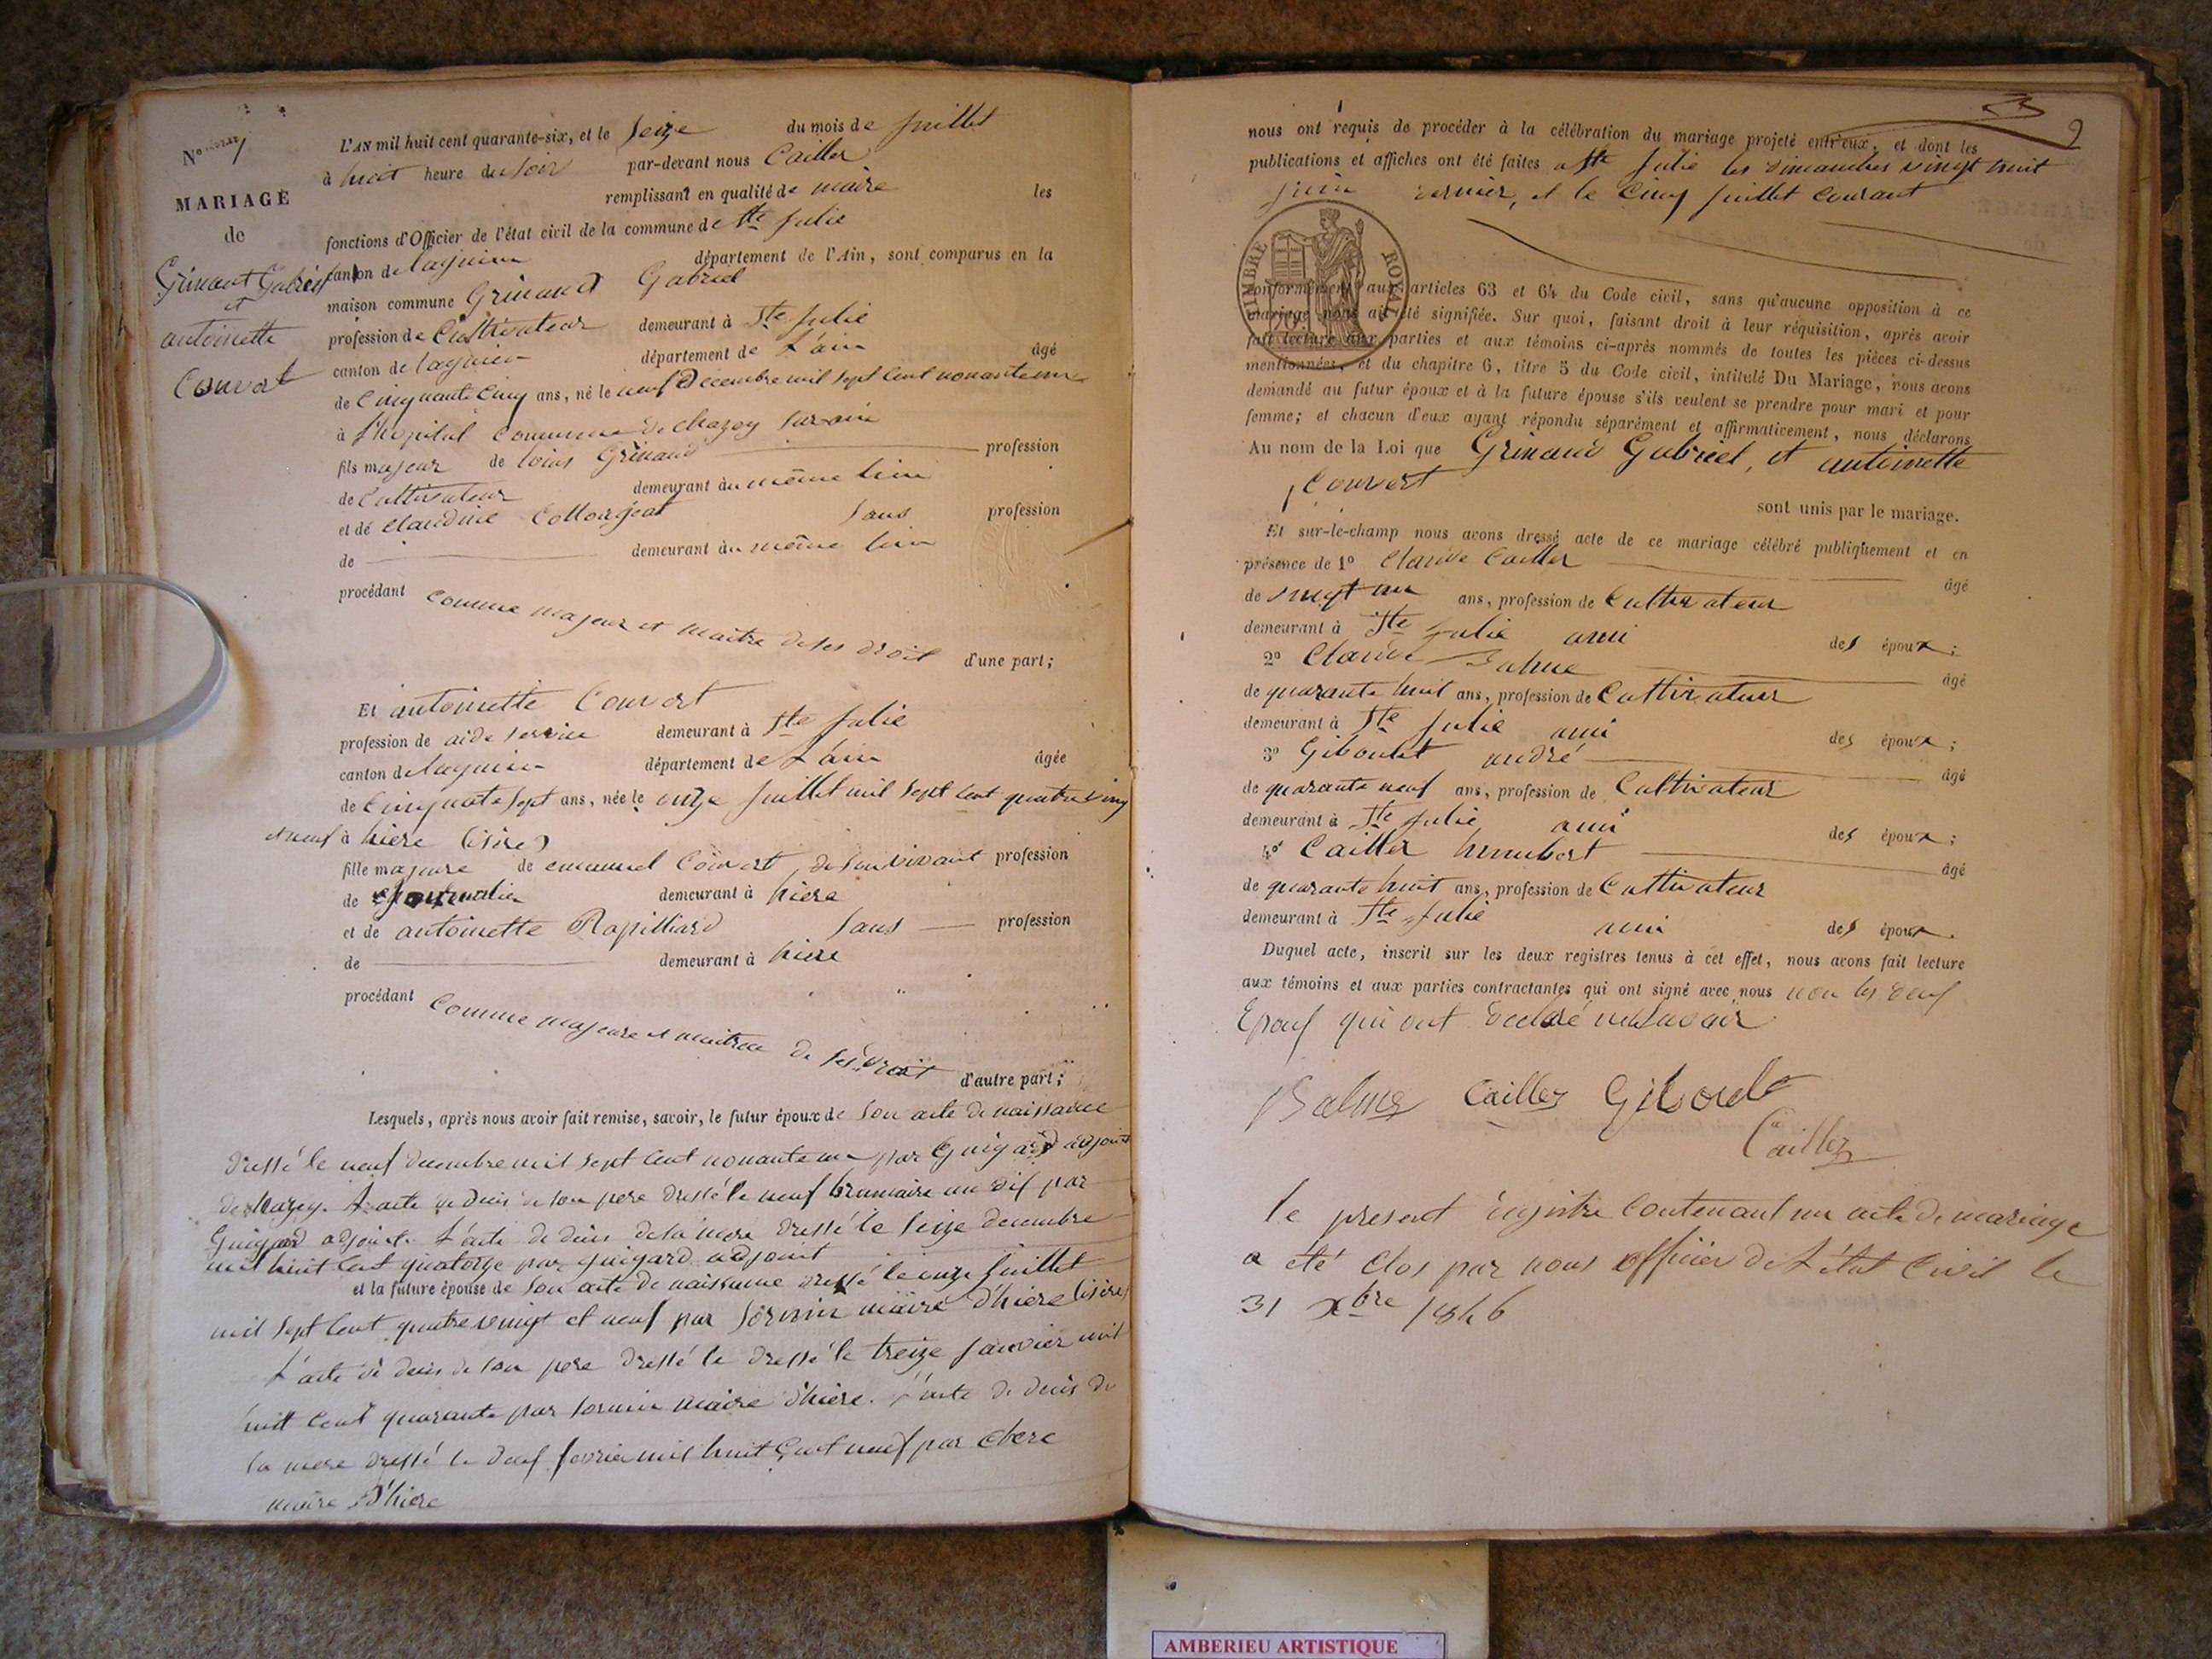 N° 1
MARIAGE
de
Grinand Gabriel
et
antoinette
Convert
L'AN mil huit cent quarante-six, et le seize du mois de juillet
à huit heure du soir par-devant nous Cailler
remplissant en qualité de maire les
fonctions d'Officier de l'état civil de la commune de Ste Julie
canton de lagnieu département de l'Ain, sont comparus en la
maison commune Grinand Gabriel
profession de Cultivateur demeurant à Ste Julie
canton de lagnieu département de L'ain âgé
de Cinquante Cinq ans, né le neuf Decembre mil sept cent nonante un
à l'hopital Commune de chazey sur ain
fils majeur de louis Grinand profession
de Cultivateur demeurant au même lieu
et de Claudine Collongeat Sans profession
de demeurant au même lieu
procédant Comme majeur et maitre de ses droit d'une part;
Et antoinette Convert
profession de aide demeurant à Ste Julie
canton de lagnieu département de L'ain âgée
de Cinquante sept ans, née le onze juillet mil sept cent quatre ving
et neuf à hiere (isire)
fille majeure de emanuel Convert, de son vivant profession
de demeurant à hiere
et de antoinette Rapilliard Sans profession
de demeurant à hiere
procédant Comme majeure et maitresse de ses droit d'autre part;
Lesquels, après nous avoir fait remise, savoir, le futur époux de son acte de naissance
dressé le neuf decembre mil sept cent nonante un par Guigard adjoint
de chazey. L'acte de deces de son pere dressé le neuf brumaire an dix par
Guigard adjoint. L'acte de deces de sa mere dressé le seize decembre
mil huit cent quatorze par guigard adjoint
et la future épouse de son acte de naissance dressé le onze juillet
mil sept cent quatre vingt et neuf par sornin maire d'hiere (isire)
L'acte de deces de son pere dressé le dressé le treize janvier mil
huit cent quarante par sornin maire d'hiere. L'acte de deces de
la mere dressé le deux fevrier mil huit cent neuf par
maire d'hiere
9
nous ont requis de procéder à la célébration du mariage projeté entr'eux, et dont les
publications et affiches ont été faites a Ste Julie les dimanches vingt huit
juin dernier, et le cinq juillet courant
TIMBRE ROYAL
70
conformément aux articles 63 et 64 du Code civil, sans qu'aucune opposition à ce
mariage nous ait été signifiée. Sur quoi, faisant droit à leur réquisition, après avoir
fait lecture aux parties et aux témoins ci-après nommés de toutes les pièces ci-dessus
mentionnées, et du chapitre 6, titre 5 du Code civil, intitulé Du Mariage, nous avons
demandé au futur époux et à la future épouse s'ils veulent se prendre pour mari et pour
femme; et chacun d'eux ayant répondu séparément et affirmativement, nous déclarons
Au nom de la Loi que Grinand Gabriel, et antoinette
Convert
sont unis par le mariage.
Et sur-le-champ nous avons dressé acte de ce mariage célébré publiquement et en
présence de 1° Claude Cailler âgé
de vingt un ans, profession de Cultivateur
demeurant à Ste Julie ami des époux;
2° Claude Balme âgé
de quarante huit ans, profession de Cultivateur
demeurant à Ste Julie ami des époux;
3° Giboulet andré âgé
de quarante neuf ans, profession de Cultivateur
demeurant à Ste Julie ami des époux;
4° Cailler humbert âgé
de quarante huit ans, profession de Cultivateur
demeurant à Ste Julie ami des époux.
Duquel acte, inscrit sur les deux registres tenus à cet effet, nous avons fait lecture
aux témoins et aux parties contractantes qui ont signé avec nous non les deux
Epoux qui ont declaré ne savoir
Balme Cailler Giboulet
Cailler
le present registre Contenant un acte de mariage
a été clos par nous officier de L'état Civil le
31 Xbre 1846
AMBERIEU ARTISTIQUE